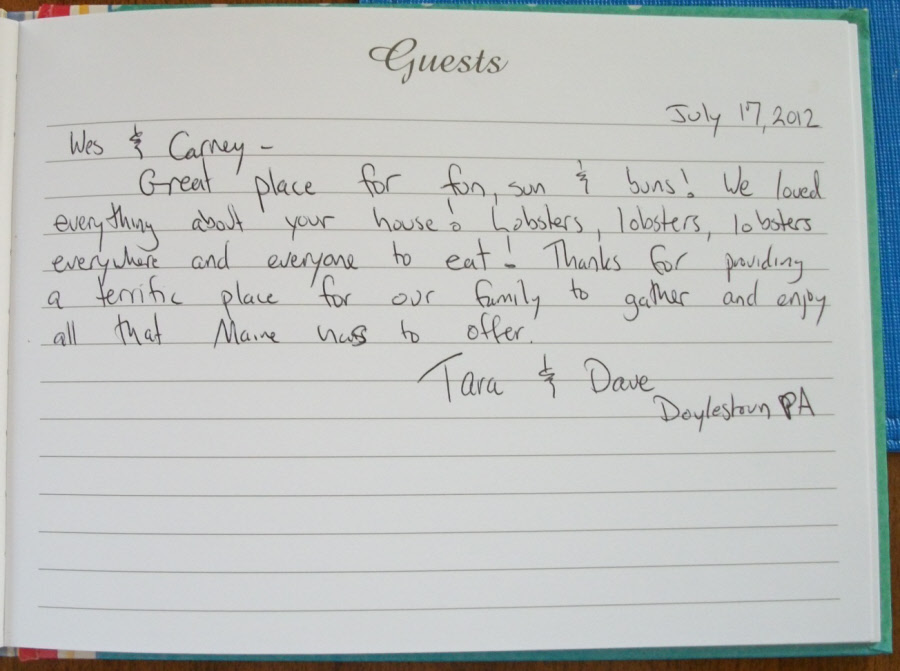 Guests
July 17, 2012
Wes & Carney -
Great place for fun, sun & buns! We loved
everything about your house! Lobsters, lobsters, lobsters
everywhere and everyone to eat! Thanks for providing
a terrific place for our family to gather and enjoy
all that Maine has to offer.
Tara & Dave
Doylestown PA